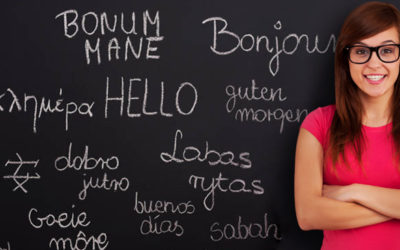 BONUM
MANE
Bonjour
λημέρα
HELLO
guten
morgen
dobro
jutro
Labas
rytas
Goeie
môre
buenos
días
sabah